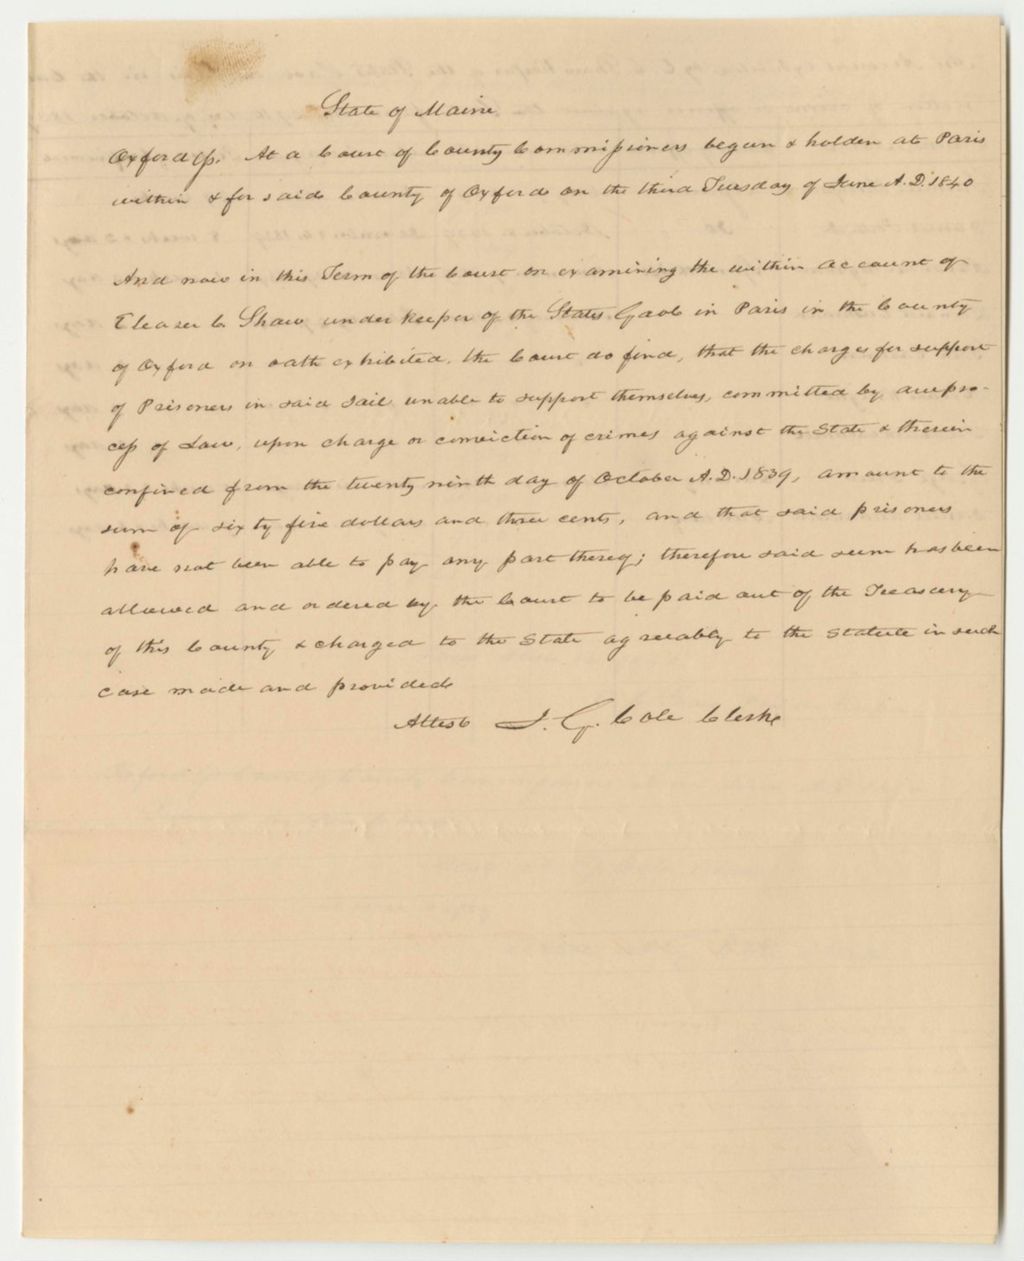 State of Maine
Oxford ss. At a Court of County Commissioners begun & holden at Paris
within & for said County of Oxford on the third Tuesday of June A.D. 1840
And now in this Term of the Court on examining the within account of
Eleazer C. Shaw under keeper of the States Gaol in Paris in the County
of Oxford on oath exhibited, the Court do find, that the charges for support
of Prisoners in said Jail unable to support themselves, committed by due pro-
cess of Law, upon charge or conviction of crimes against the State & therein
confined from the twenty ninth day of October A.D. 1839, amount to the
sum of sixty five dollars and three cents, and that said prisoners
have not been able to pay any part thereof; therefore said sum has been
allowed and ordered by the Court to be paid out of the Treasury
of this County & charged to the State agreeably to the Statute in such
case made and provided
Attest J. G. Cole Clerk